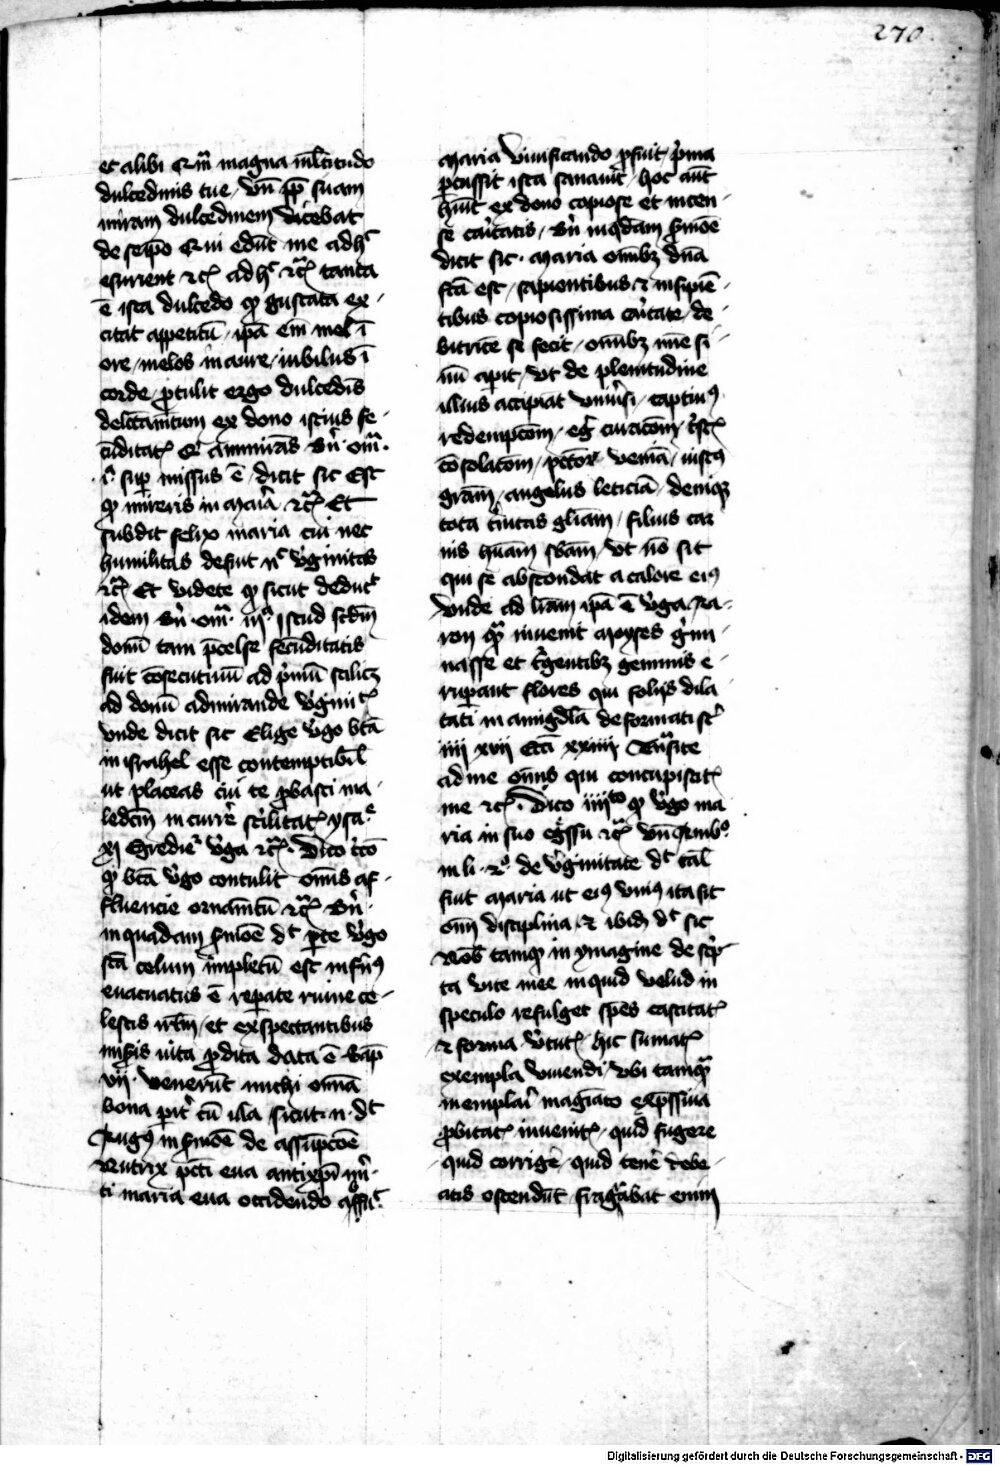 270
et alibi Qm̄ magna ml̄titudo
dulcedinis tue / vn̄ ip̄e suam
miram dulcedinem dicebat
de seip̄o Qui edūt me adhc
esurient &c ad hc &c tanta
ē ista dulcedo qͣ gustata ex-
citat appetitū / ip̄a em̄ mel ī
ore / melos in aure / iubilus ī
corde / ꝓtulit ergo dulcedīs
delectam̄tum ex dono istius fe-
cūditatꝭ Et ammirās Bn̄ · om̄ ·
i · suꝑ missus ē / dicit sic Est
qͣ mireris in maīa &c Et
subdit felix maria cui nec
humilitas defuit nc vg̓initas
&c Et videte qͣ sicut deducit
idem Bn̄ · om̄ · iiia Istud scd̄m
donū tam p̄celse fecūditatis
fuit cōsecutiuū ad p̓mū scilicꝫ
ad donū admirande vg̓initꝭ
vnde dicit sic Elige vg̓o bt̄a
in israhel esse contemptibil̄
ut placeas cui te ꝓbasti ma-
ledc̄m incurrē stilitatꝭ ysae
xi Egredieͬ vg̓a &c Dico tc̄o
qͣ bt̄a vg̓o contulit om̄is af-
fluencie ornam̄tū &c Bn̄ ·
in quadam s̓moē dt p̄te vg̓o
st̄a celum impletū est infn̓ꝰ
euacuatus ē reꝑate ruine ce-
lestis irl̄m / et exspectantibus
mis̓is uita ꝓdita data ē Sap̄
vii · venerūt michi om̄a
bona ꝑitͬ cū illa sicut · n · dt
hugꝰ in s̓moē de assūpcōe
Nutrix pc̄ti eua antixp̄i mr̄
ti maria eua occidendo
maria viuificando ꝓfuit / p̓ma
ꝑcussit ista sanauit / hoc aūt
hūit ex dono copiose et incen-
se caritatis / Bn̄ in qd̄am s̓moē
dicit sic · maria om̄ibꝫ om̄a
fc̄a est / sapientibus & insipiē-
tibus copiosissima caritate / de-
bitricē se fecit / om̄ibꝫ mīe si-
nū apuit / vt de plenitudine
illius accipiat vniu̓si / captiuꝰ
redempcōm / eg̓ curacōm / tristꝭ
cōsolacōm / pc̄tor veniā / iustꝰ
grām / angelus leticiā / deniqꝫ
tota trinitas gl̄iam / filius car
nis hūam sb̄am / vt nō sit
qui se abscondat a calore eiꝰ
vnde ad lr̄am ip̄a ē vg̓a aa-
ron qͣ inuenit moyses g̓mi-
nasse et tg̓entibꝫ gemmis e-
ruꝑant flores qui folijs dila
tati in amigdl̄a deformati st̓
iiii xvii Ecc̄i xxiiii Tn̄site
ad me om̄is qui concupiscitꝭ
me &c · Dico iiiito qͣ vg̓o ma
ria in suo eg̓ssu &c vn̄ Ambꝰ
in li · 2o · de vg̓initate dt tal̄
fuit maria ut eiꝰ vniꝰ ita sit
om̄ disciplina & ibid̄ dt sic
Nob̄ tamqͣ in ymagine descͥp
ta vite mee inquid velud in
speculo refulget spēs castitatꝭ
& forma v̓tutꝭ hic sumatꝭ
exempla viuendi vbi tamqͣ
in emplari magiāto exp̄ssiua
ꝓbitatꝭ inuenitꝭ / quid fugere
quid corrige quid tenē debe-
atis ostendūt fragͣbat enim
Digitalisierung gefördert durch die Deutsche Forschungsgemeinschaft - DFG